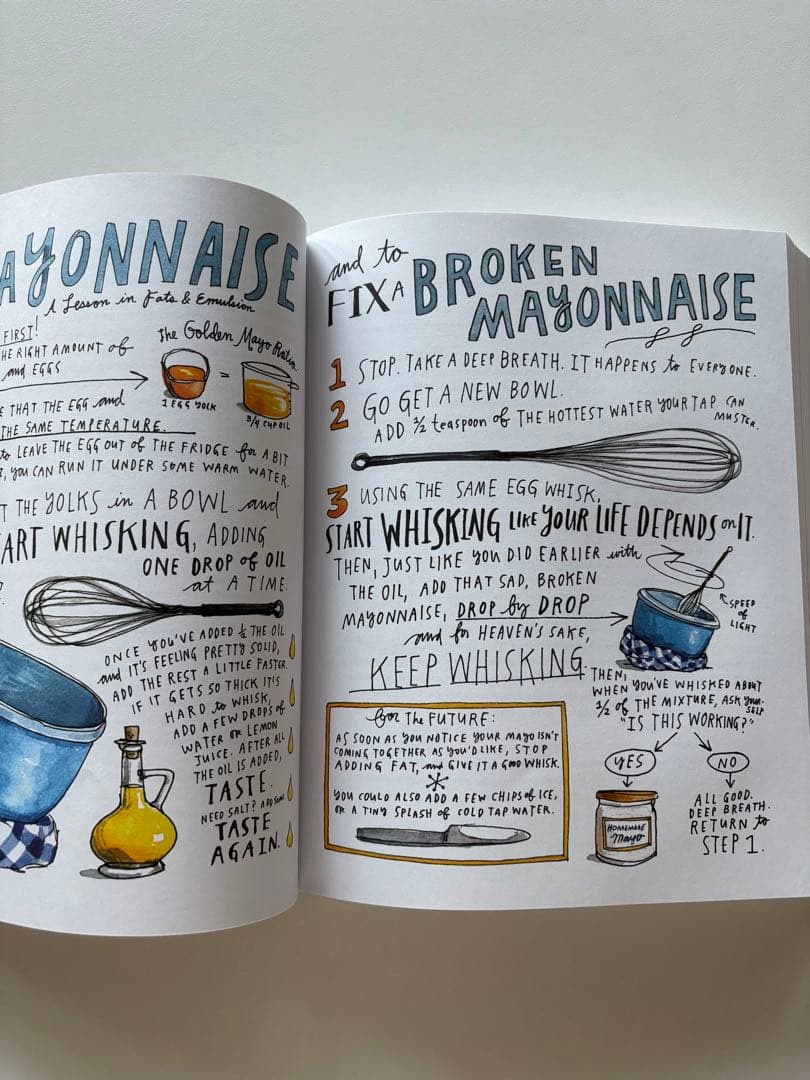 AYONNAISE
A Lesson in Fats & Emulsion
FIRST!
HE RIGHT AMOUNT of
and EGGS
The Golden Mayo Ratio
=
1 EGG YOLK
3/4 CUP OIL
E THAT THE EGG and
THE SAME TEMPERATURE.
to LEAVE THE EGG OUT of THE FRIDGE for A BIT
YOU CAN RUN IT UNDER SOME WARM WATER.
T THE YOLKS in A BOWL and
ART WHISKING, ADDING
ONE DROP of OIL
at A TIME.
ONCE YOU'VE ADDED 1/2 THE OIL
and IT'S FEELING PRETTY SOLID,
ADD THE REST A LITTLE FASTER.
IF IT GETS SO THICK IT'S
HARD to WHISK,
ADD A FEW DROPS of
WATER OR LEMON
JUICE. AFTER ALL
THE OIL IS ADDED,
TASTE.
NEED SALT? ADD SOME.
TASTE
AGAIN.
and to
FIX A BROKEN
MAYONNAISE
1 STOP. TAKE A DEEP BREATH. IT HAPPENS to EVERYONE.
2 GO GET A NEW BOWL.
ADD 1/2 teaspoon of THE HOTTEST WATER YOUR TAP CAN
MUSTER.
3 USING THE SAME EGG WHISK,
START WHISKING LIKE YOUR LIFE DEPENDS on IT.
THEN, JUST LIKE YOU DID EARLIER with
THE OIL, ADD THAT SAD, BROKEN
MAYONNAISE, DROP by DROP
and for HEAVEN'S SAKE,
KEEP WHISKING.
SPEED
of
LIGHT
THEN,
WHEN YOU'VE WHISKED ABOUT
1/2 of THE MIXTURE, ASK YOUR-
SELF
"IS THIS WORKING?"
YES
NO
HOMEMADE
Mayo
ALL GOOD.
DEEP BREATH.
RETURN to
STEP 1.
for The FUTURE:
AS SOON AS YOU NOTICE YOUR MAYO ISN'T
COMING TOGETHER AS YOU'D LIKE, STOP
ADDING FAT, and GIVE IT A GOOD WHISK.
*
YOU COULD ALSO ADD A FEW CHIPS of ICE,
OR A TINY SPLASH of COLD TAP WATER.